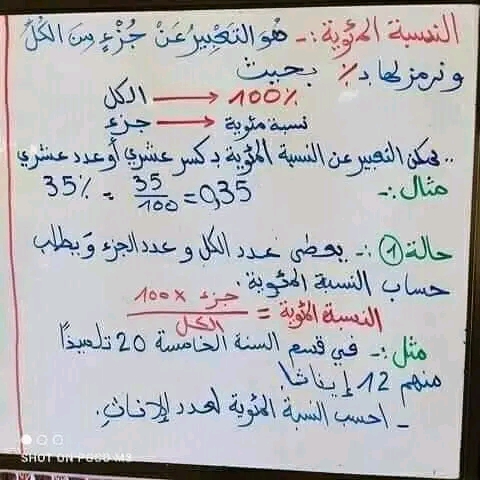 النسبة المئوية :- هو التعبير عن جزء من الكل
ونرمز لها بـ % بحيث
الكل → 100%
جزء → نسبة مئوية
.. يمكن التعبير عن النسبة المئوية بكسر عشري أو عدد عشري
مثال :- 35% = 35/100 = 0,35
حالة ① :- يعطى عدد الكل و عدد الجزء و يطلب
حساب النسبة المئوية.
النسبة المئوية = جزء × 100 / الكل
مثل :- في قسم السنة الخامسة 20 تلميذا
منهم 12 إناثا.
- احسب النسبة المئوية لعدد الإناث.
SHOT ON POCO M3